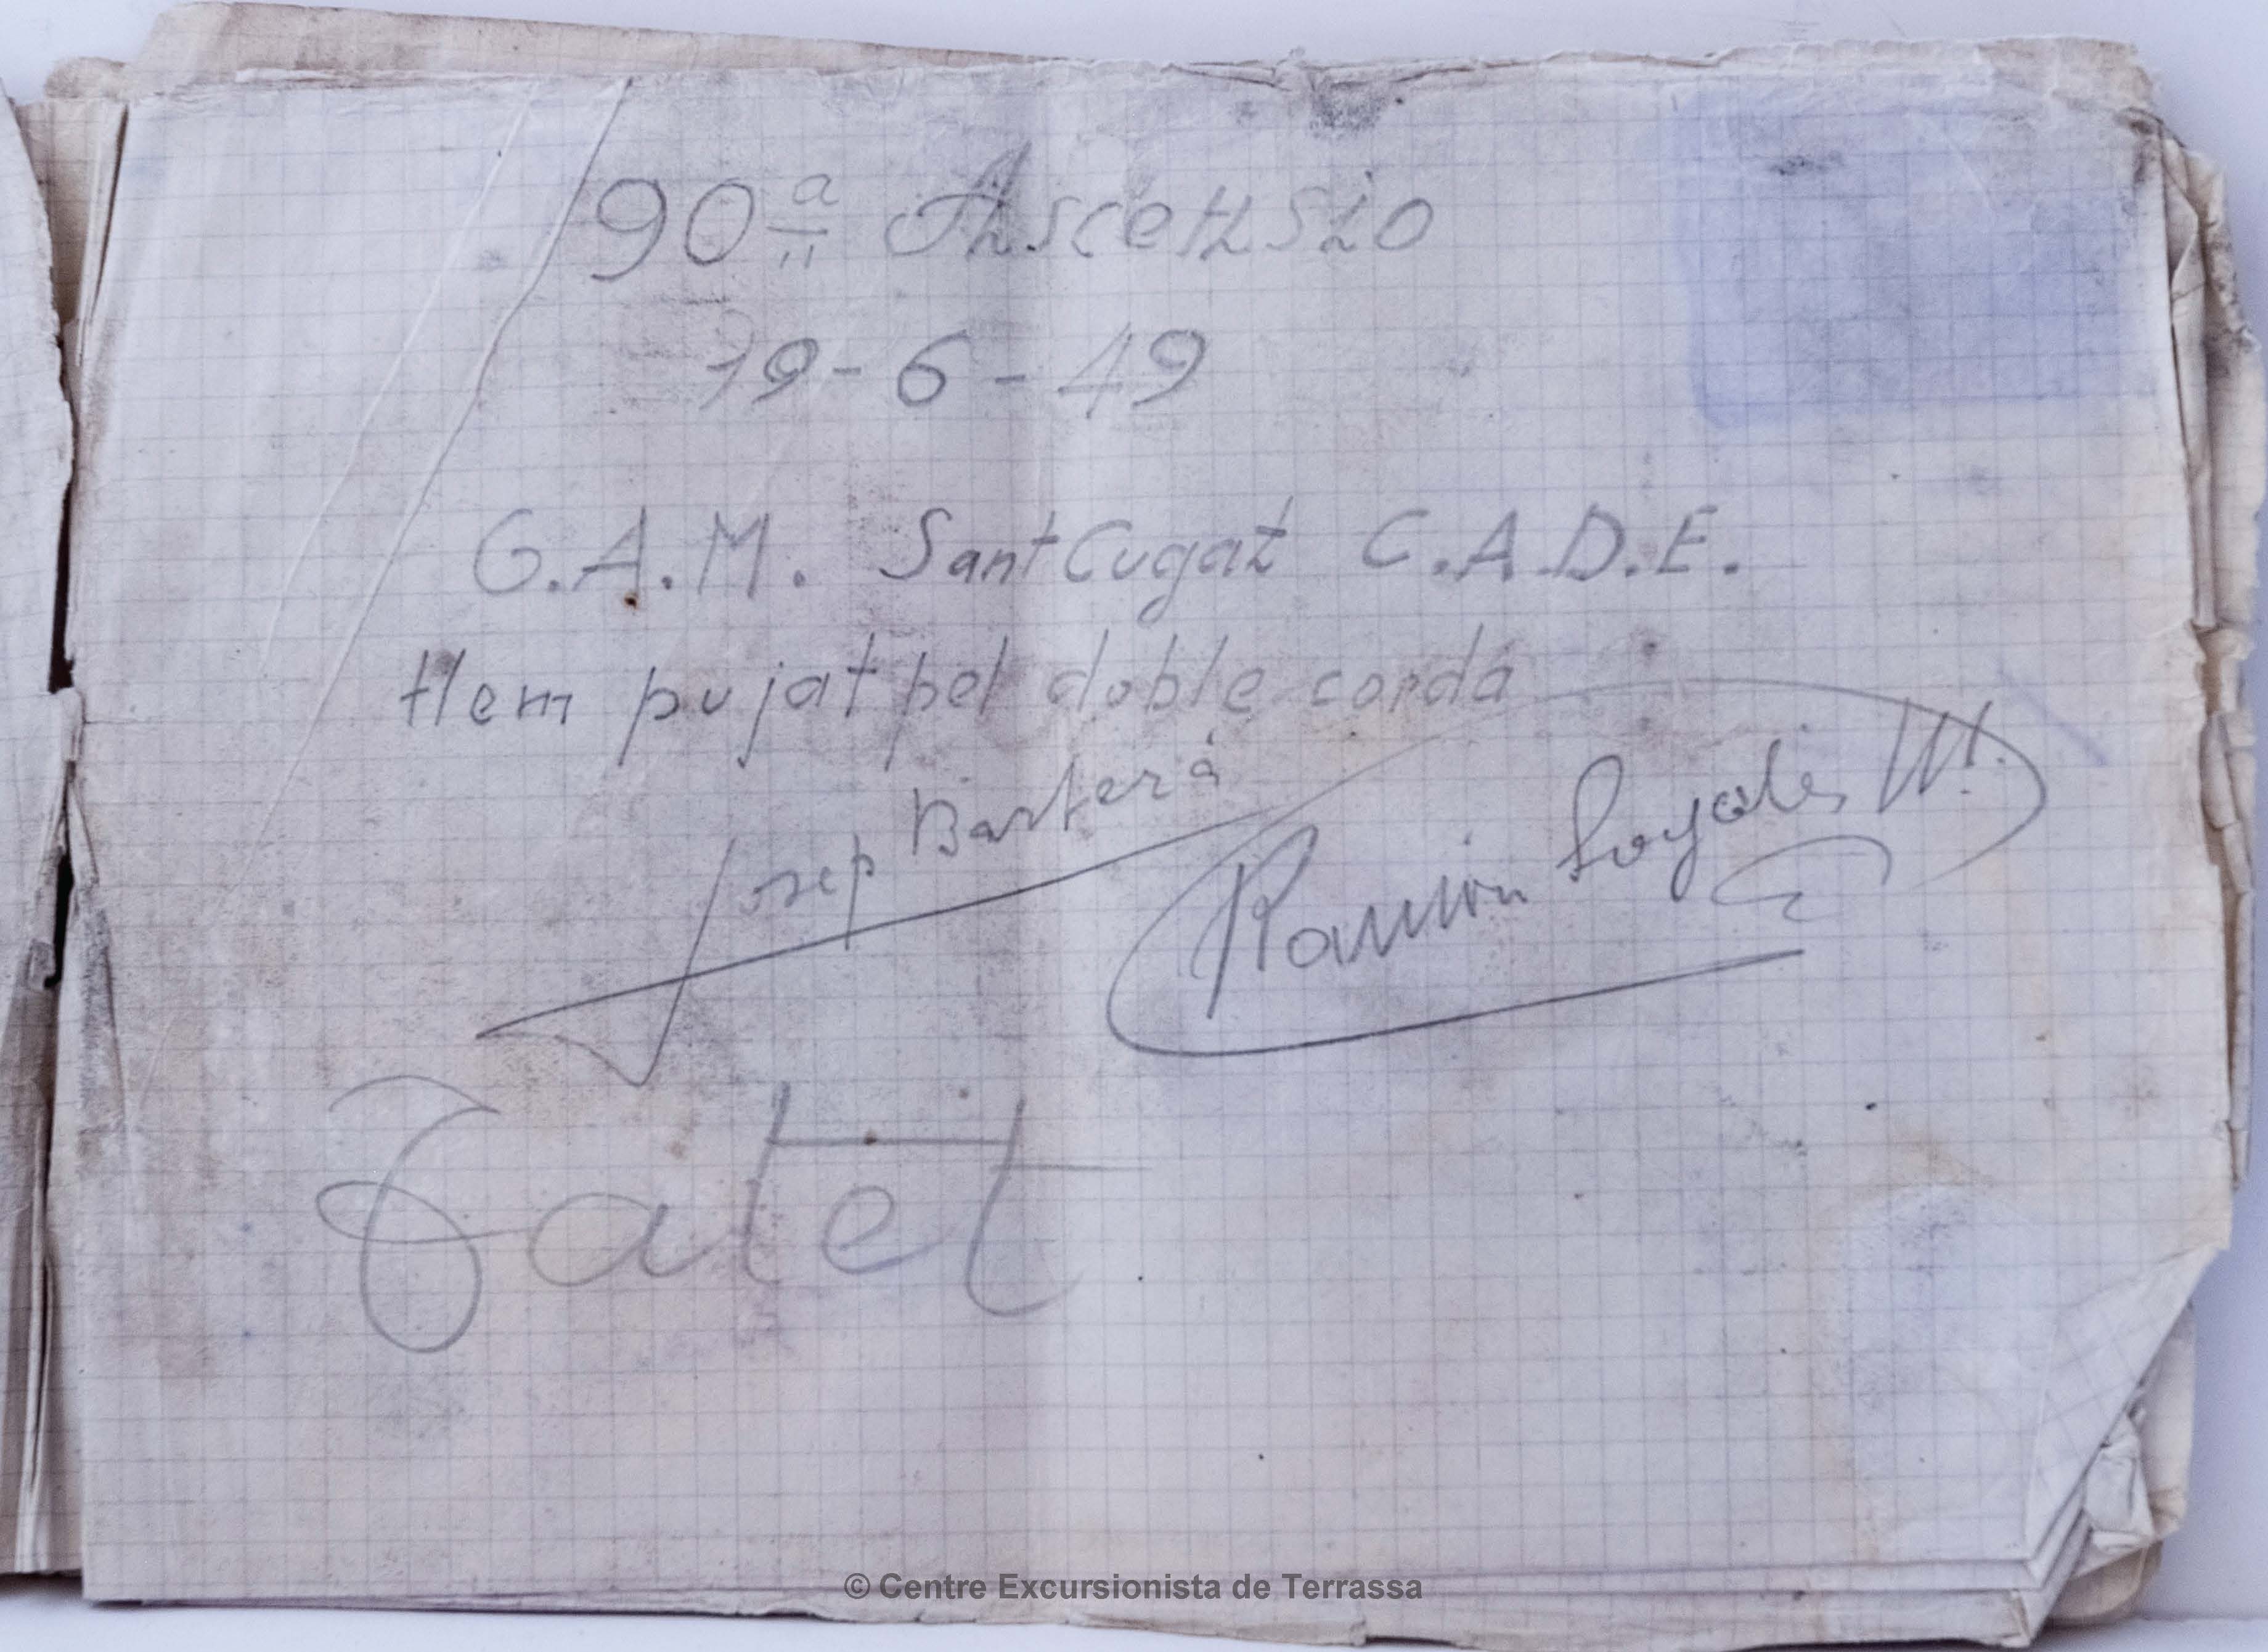 90ª Ascensio
19-6-49
G.A.M. Sant Cugat C.A.D.E.
Hem pujat pel doble corda
Josep Barterá
Ramón
Tatet
© Centre Excursionista de Terrassa